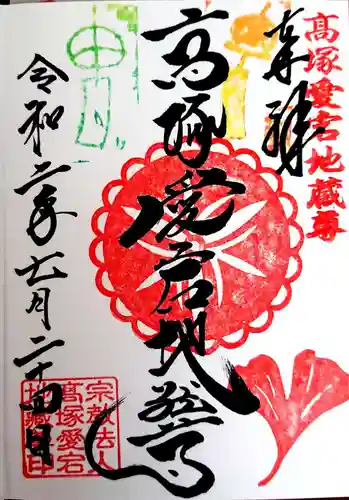 高塚愛宕地蔵尊
奉拝
高塚愛宕地蔵尊
令和二年七月二十四日
宗教法人
高塚愛宕
地蔵印